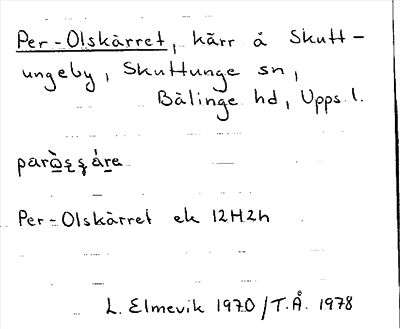 Per-Olskärret, kärr å Skutt-
ungeby, Skuttunge sn,
Bälinge hd, Upps. l.
Per-Olskärret ek 12H2h
L. Elmevik 1970/T.Å. 1978